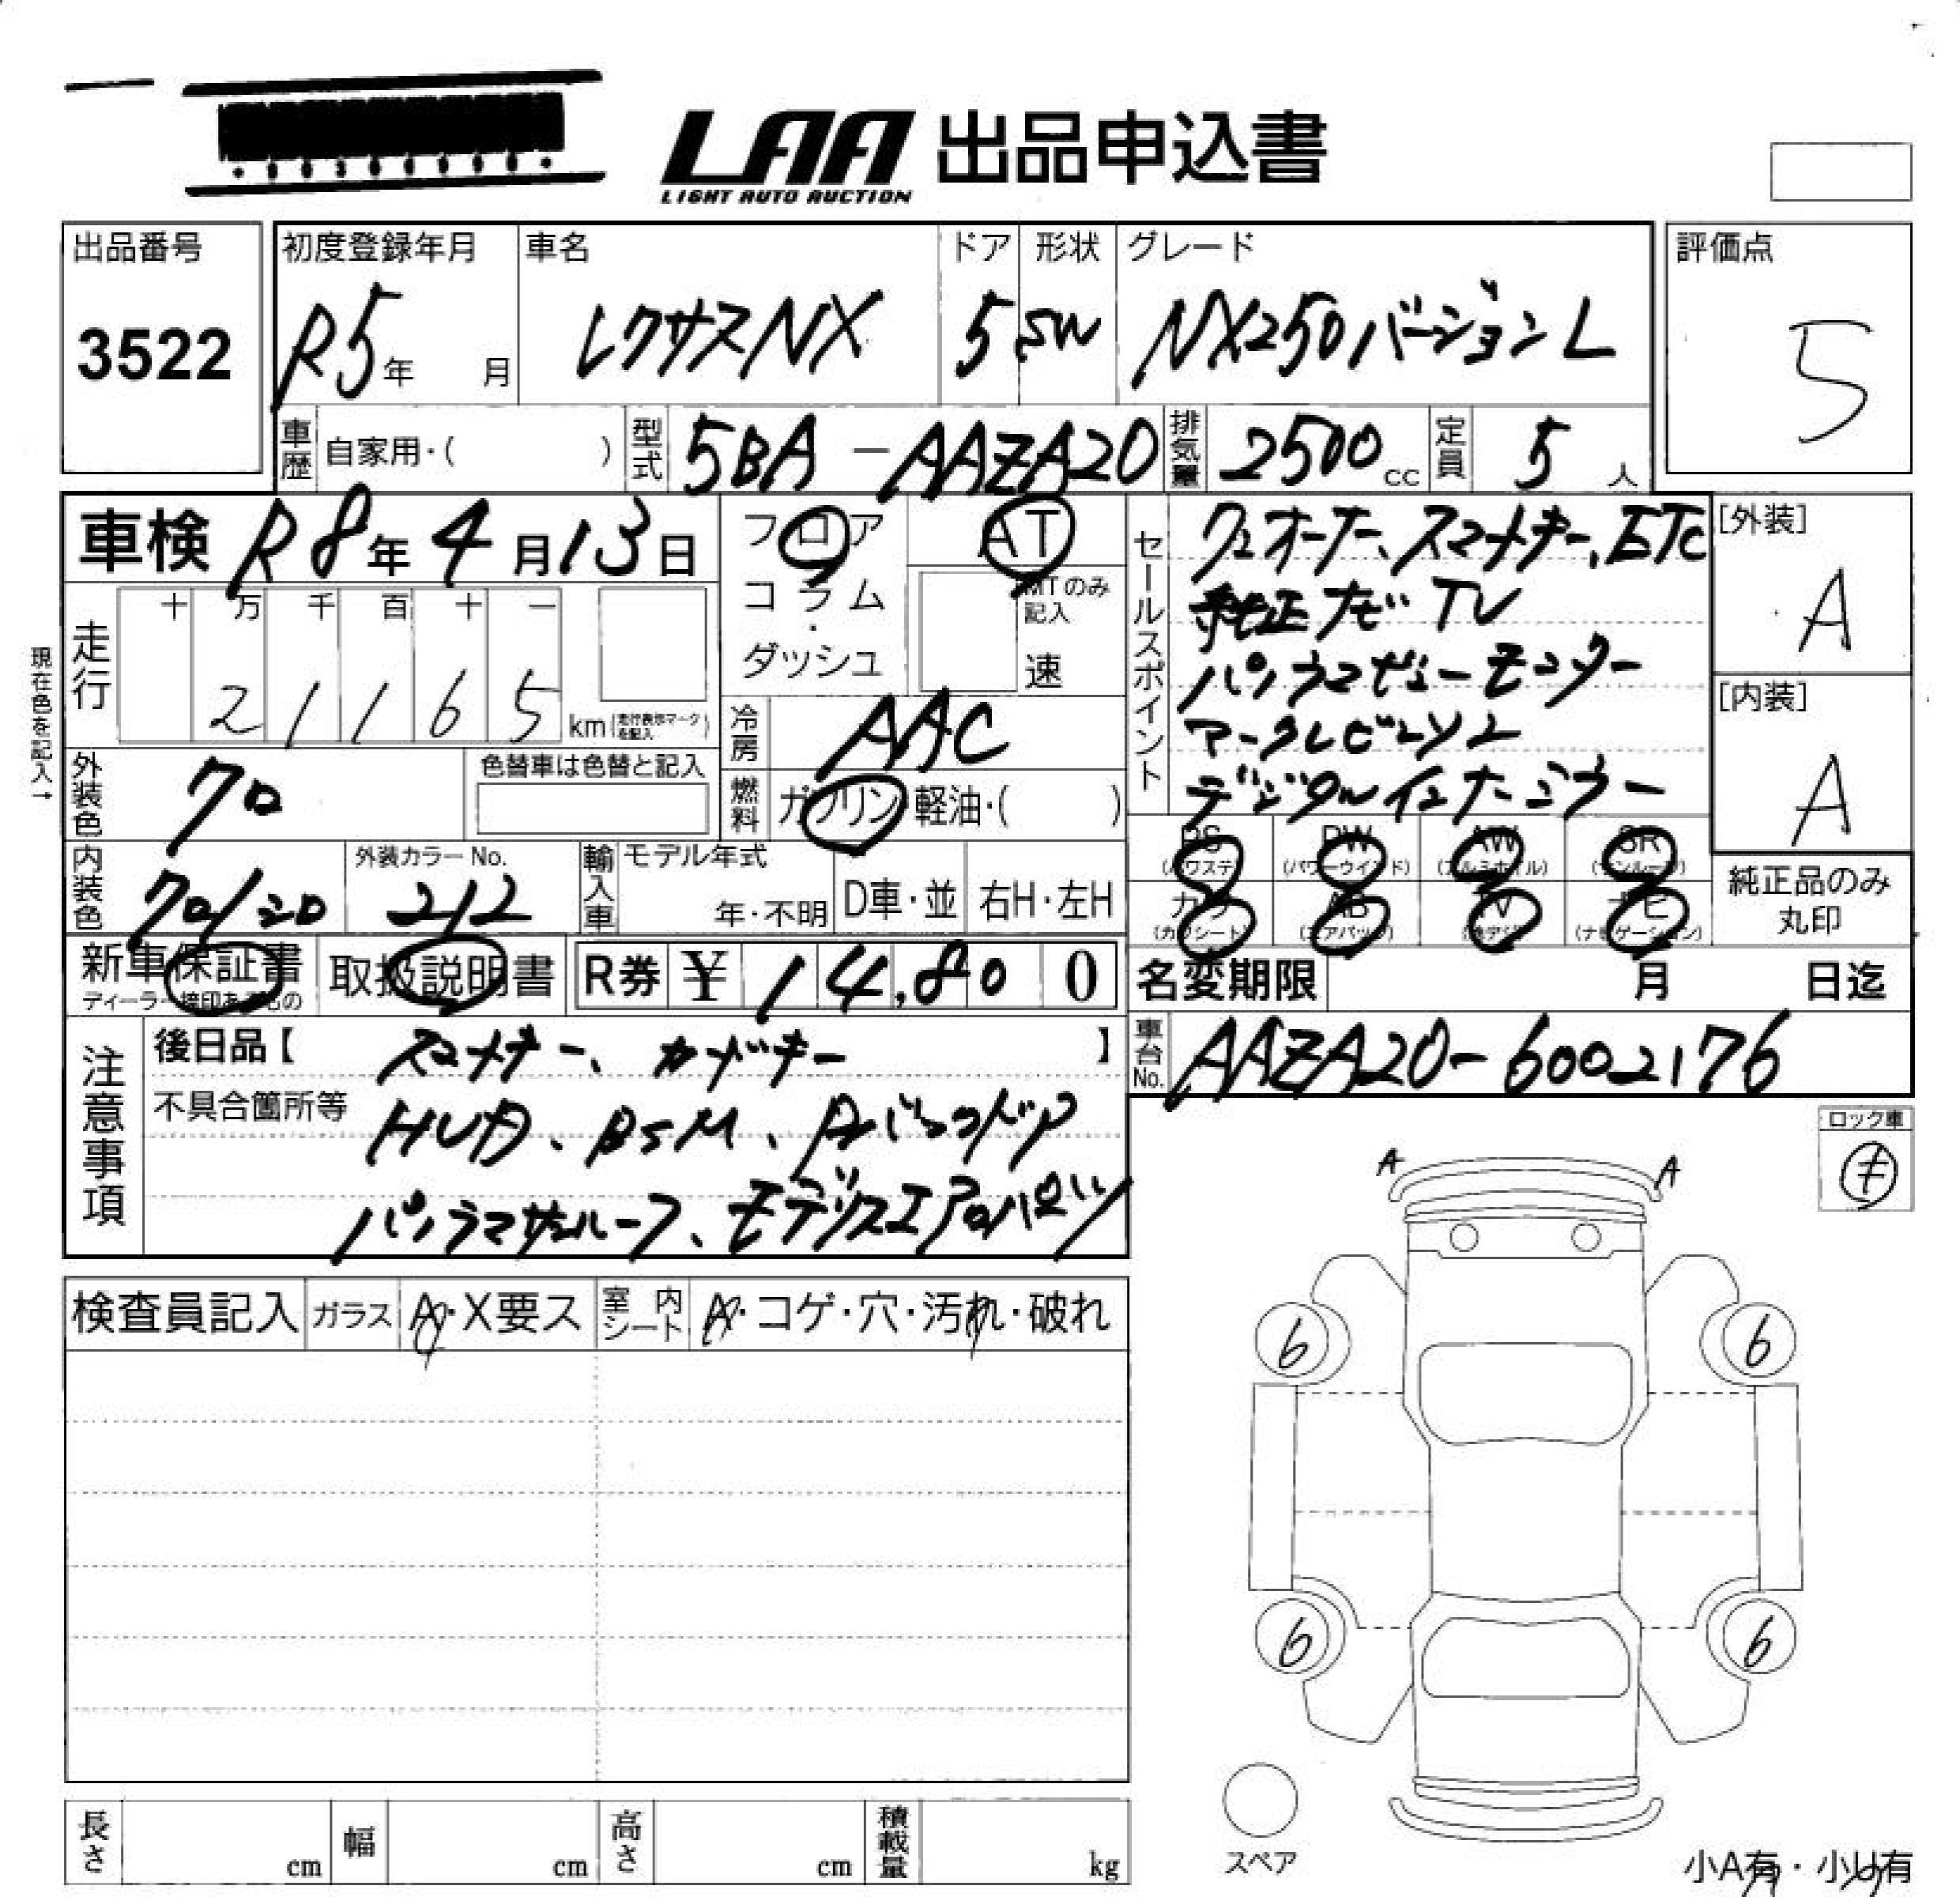 LAA 出品申込書
LIGHT AUTO AUCTION
出品番号 初度登録年月 車名 ドア 形状 グレード 評価点
3522 R5年 月 レクサスNX 5 SW NX250バージョンL 5
車歴 自家用・( ) 型式 5BA-AAZA20 排気量 2500cc 定員 5人
車検 R8年4月13日 フロア AT セールスポイント ワンオーナー、スマートキー、ETC [外装]
コラム・ MTのみ記入 純正ナビTV A
走行 十 万 千 百 十 一 ダッシュ 速 パノラマビューモニター
21165 km(走行表示マークを記入) 冷房 AAC マークレビンソン [内装]
現在色を記入→
外装色 クロ 色替車は色替と記入 燃料 ガソリン・軽油・( ) デジタルインナーミラー A
PS (パワステ) PW (パワーウインド) AW (アルミホイル) SR (サンルーフ)
内装色 クロ/シロ 外装カラーNo. 212 輸入車 モデル年式 年・不明 D車・並 右H・左H カワ (カワシート) AB (エアバッグ) TV (地デジ) ナビ (ナビゲーション) 純正品のみ丸印
新車保証書 取扱説明書 R券 ¥ 14,800 名変期限 月 日迄
ディーラー捺印あるもの
注意事項 後日品【 スマートキー、カードキー 】 車台No. AAZA20-6002176
不具合箇所等 HUD、BSM、Pバックドア
パノラマサンルーフ、モデリスタエアロパーツ
ロック車 キ
A A
検査員記入 ガラス A・X要ス 室内シート A・コゲ・穴・汚れ・破れ
6 6
6 6
長さ cm 幅 cm 高さ cm 積載量 kg スペア 小A有・小U有